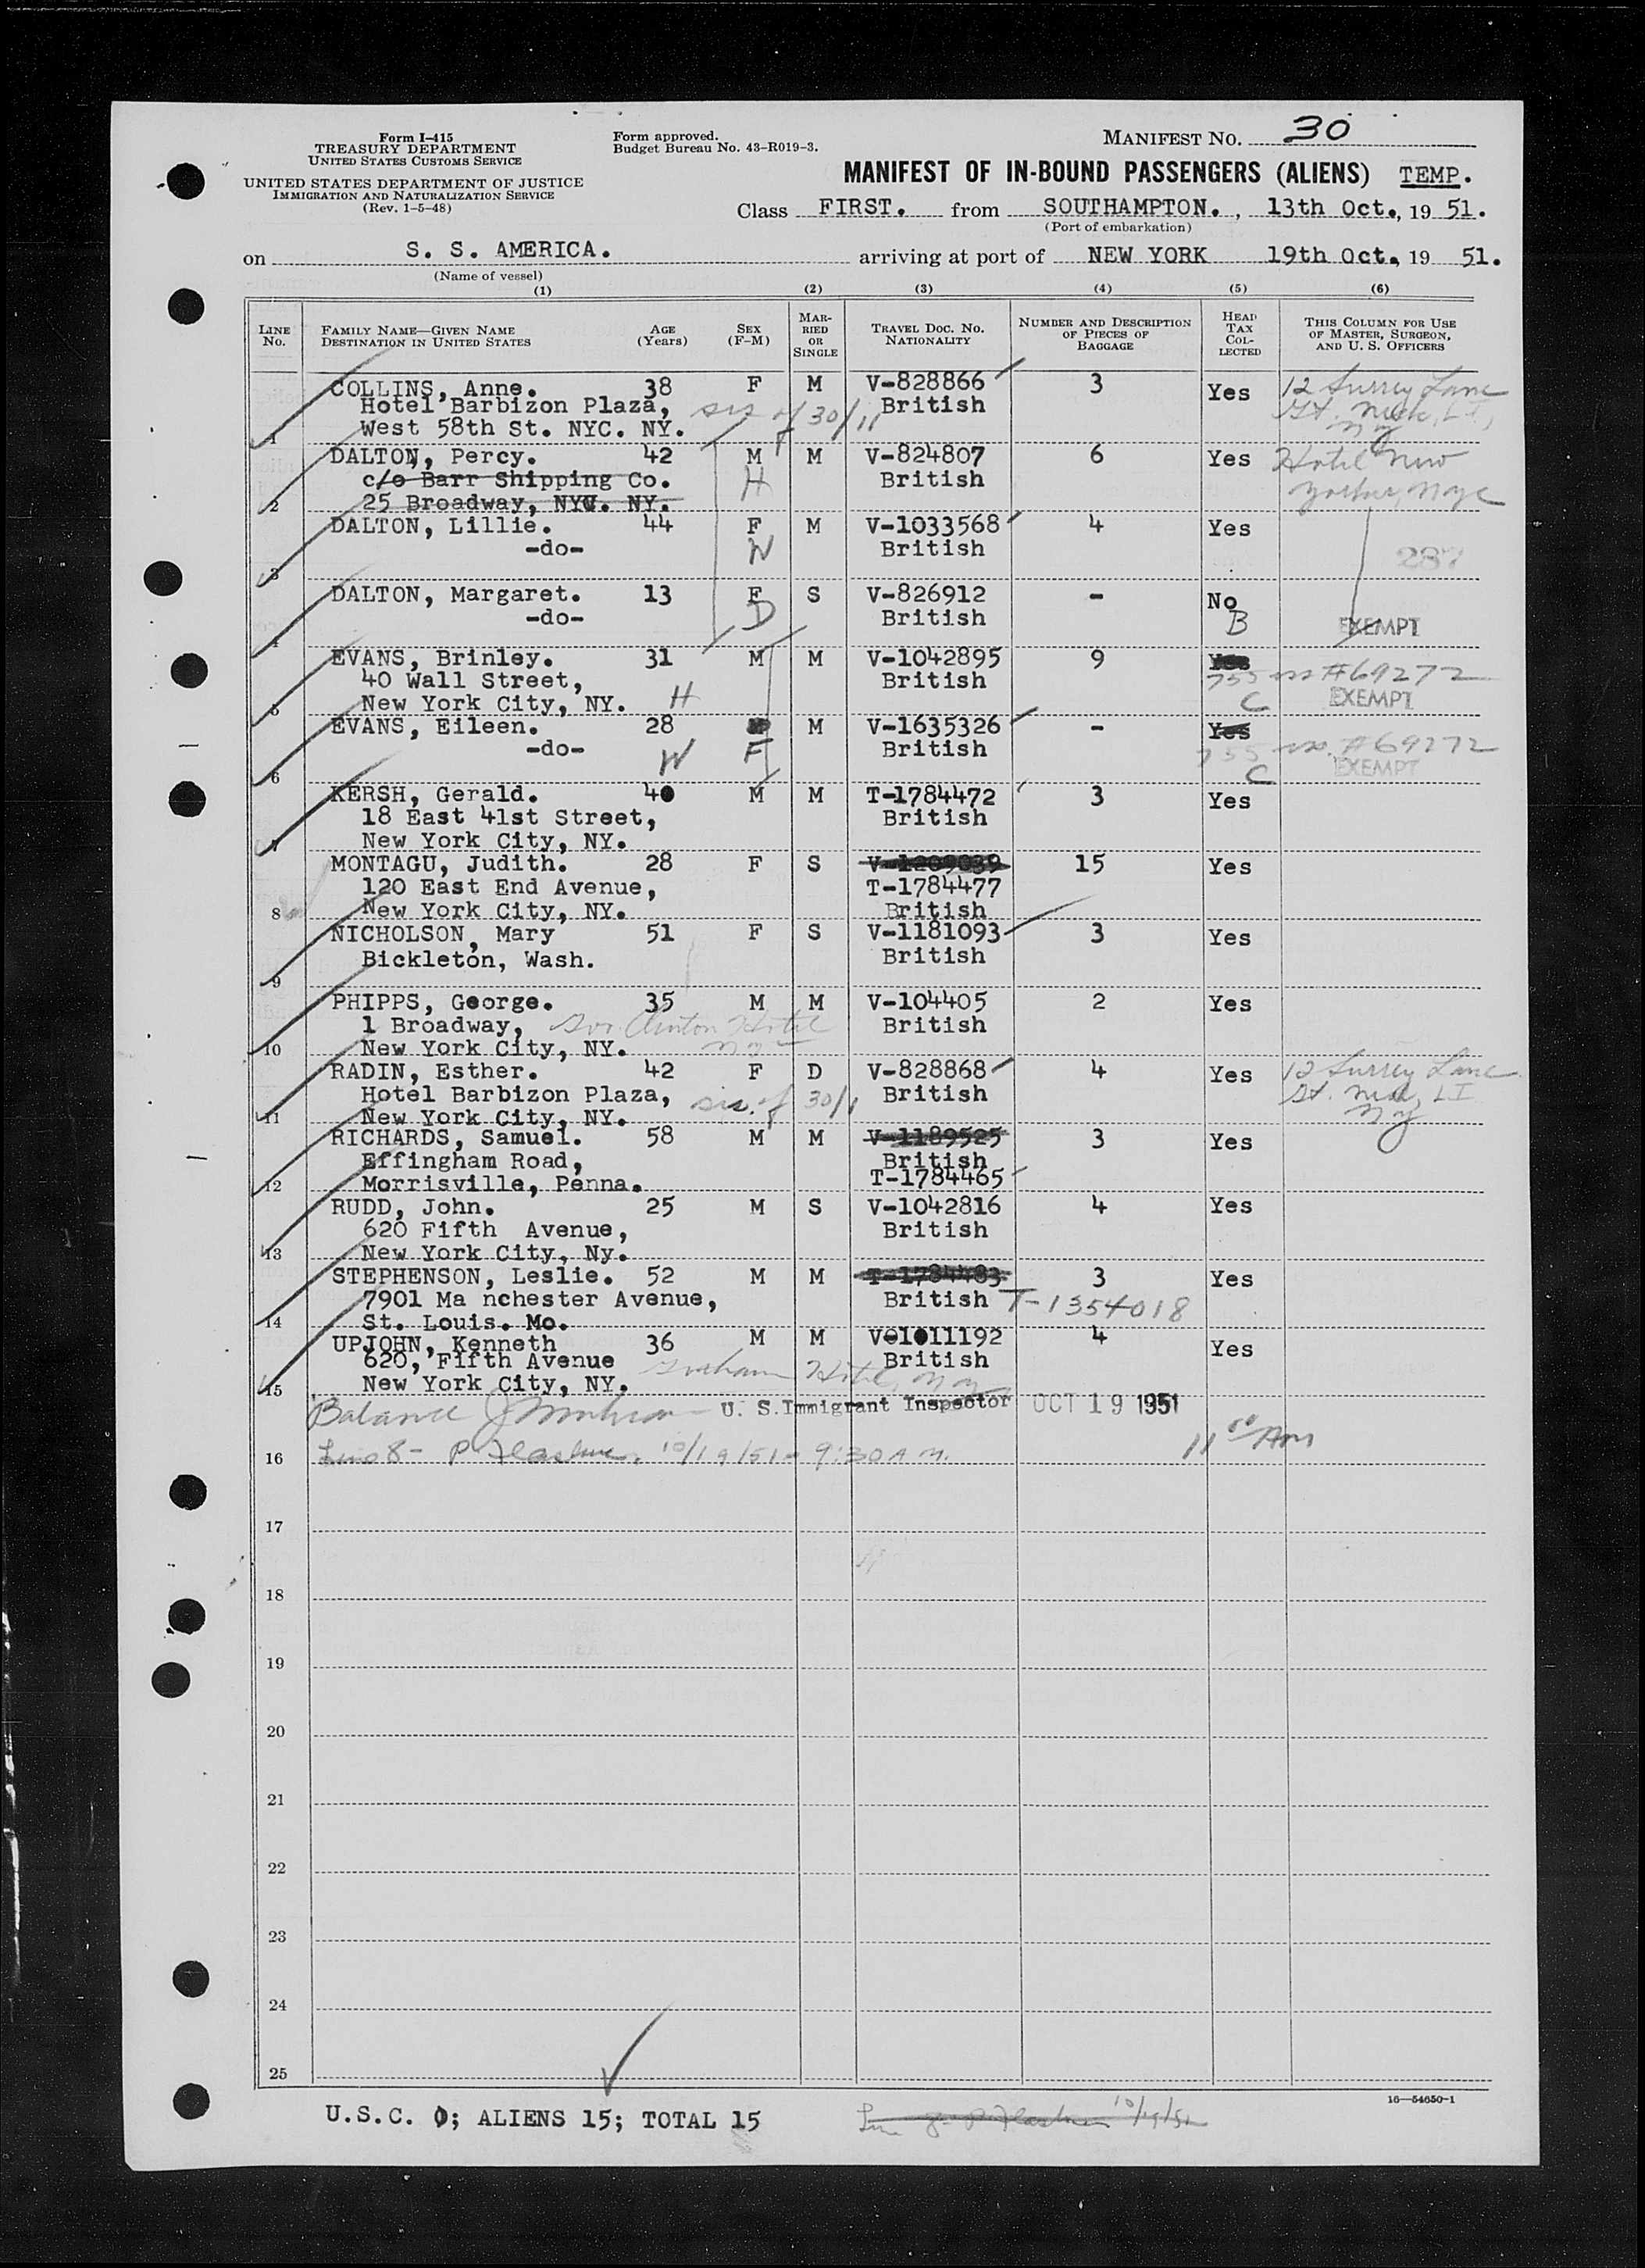 Form I-415
TREASURY DEPARTMENT
UNITED STATES CUSTOMS SERVICE
UNITED STATES DEPARTMENT OF JUSTICE
IMMIGRATION AND NATURALIZATION SERVICE
(Rev. 1-5-48)
Form approved.
Budget Bureau No. 43-R019-3.
MANIFEST NO. 30
MANIFEST OF IN-BOUND PASSENGERS (ALIENS) TEMP.
Class FIRST. from SOUTHAMPTON. , 13th Oct., 19 51.
(Port of embarkation)
on S. S. AMERICA. arriving at port of NEW YORK 19th Oct., 19 51.
(Name of vessel)
(1) (2) (3) (4) (5) (6)
LINE No. FAMILY NAME—GIVEN NAME DESTINATION IN UNITED STATES AGE (Years) SEX (F-M) MARRIED OR SINGLE TRAVEL DOC. NO. NATIONALITY NUMBER AND DESCRIPTION OF PIECES OF BAGGAGE HEAD TAX COLLECTED THIS COLUMN FOR USE OF MASTER, SURGEON, AND U. S. OFFICERS
COLLINS, Anne. 38 F M V-828866 3 Yes 12 Surrey Lane
Hotel Barbizon Plaza, sis of 30/11 British Gt. Neck, LI,
1 West 58th St. NYC. NY. NY
DALTON, Percy. 42 M M V-824807 6 Yes Hotel New
c/o Barr Shipping Co. H British Yorker, NYC
2 25 Broadway, NYC. NY.
DALTON, Lillie. 44 F M V-1033568 4 Yes
-do- W British 237
3
DALTON, Margaret. 13 F S V-826912 - No
-do- D British B EXEMPT
4
EVANS, Brinley. 31 M M V-1042895 9 Yes
40 Wall Street, British 755 #69272
5 New York City, NY. H C EXEMPT
EVANS, Eileen. 28 M V-1635326 - Yes
-do- W F British 755 #69272
6 C EXEMPT
KERSH, Gerald. 40 M M T-1784472 3 Yes
18 East 41st Street, British
7 New York City, NY.
MONTAGU, Judith. 28 F S V-1209039 15 Yes
120 East End Avenue, T-1784477
8 New York City, NY. British
NICHOLSON, Mary 51 F S V-1181093 3 Yes
Bickleton, Wash. British
9
PHIPPS, George. 35 M M V-104405 2 Yes
1 Broadway, Gov. Clinton Hotel British
10 New York City, NY. NY
RADIN, Esther. 42 F D V-828868 4 Yes 12 Surrey Lane
Hotel Barbizon Plaza, sis. of 30/1 British Gt. Neck, LI
11 New York City, NY. NY
RICHARDS, Samuel. 58 M M V-1189525 3 Yes
Effingham Road, British
12 Morrisville, Penna. T-1784465
RUDD, John. 25 M S V-1042816 4 Yes
620 Fifth Avenue, British
13 New York City, Ny.
STEPHENSON, Leslie. 52 M M T-1784483 3 Yes
7901 Ma nchester Avenue, British T-1354018
14 St. Louis. Mo.
UPJOHN, Kenneth 36 M M V-1011192 4 Yes
620, Fifth Avenue British
15 New York City, NY. Hotel, NY
Balance U. S. Immigrant Inspector OCT 19 1951
11 50 AM
16 Line 8 - P. 10/19/51 - 9:30 AM.
17
18
19
20
21
22
23
24
25
16—54650-1
U.S.C. 0; ALIENS 15; TOTAL 15 10/19/51